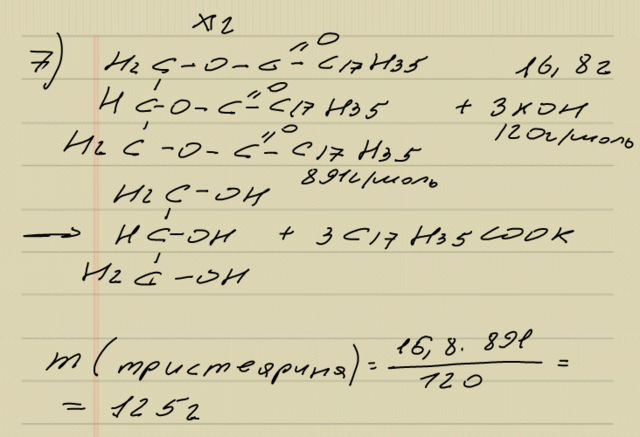 x г
7) H2C-O-C=O-C17H35 16,8г
HC-O-C=O-C17H35 + 3KOH
H2C-O-C=O-C17H35 120г/моль
891г/моль
H2C-OH
→ HC-OH + 3C17H35COOK
H2C-OH
m(тристеярина) = 16,8·891/120 =
= 125г